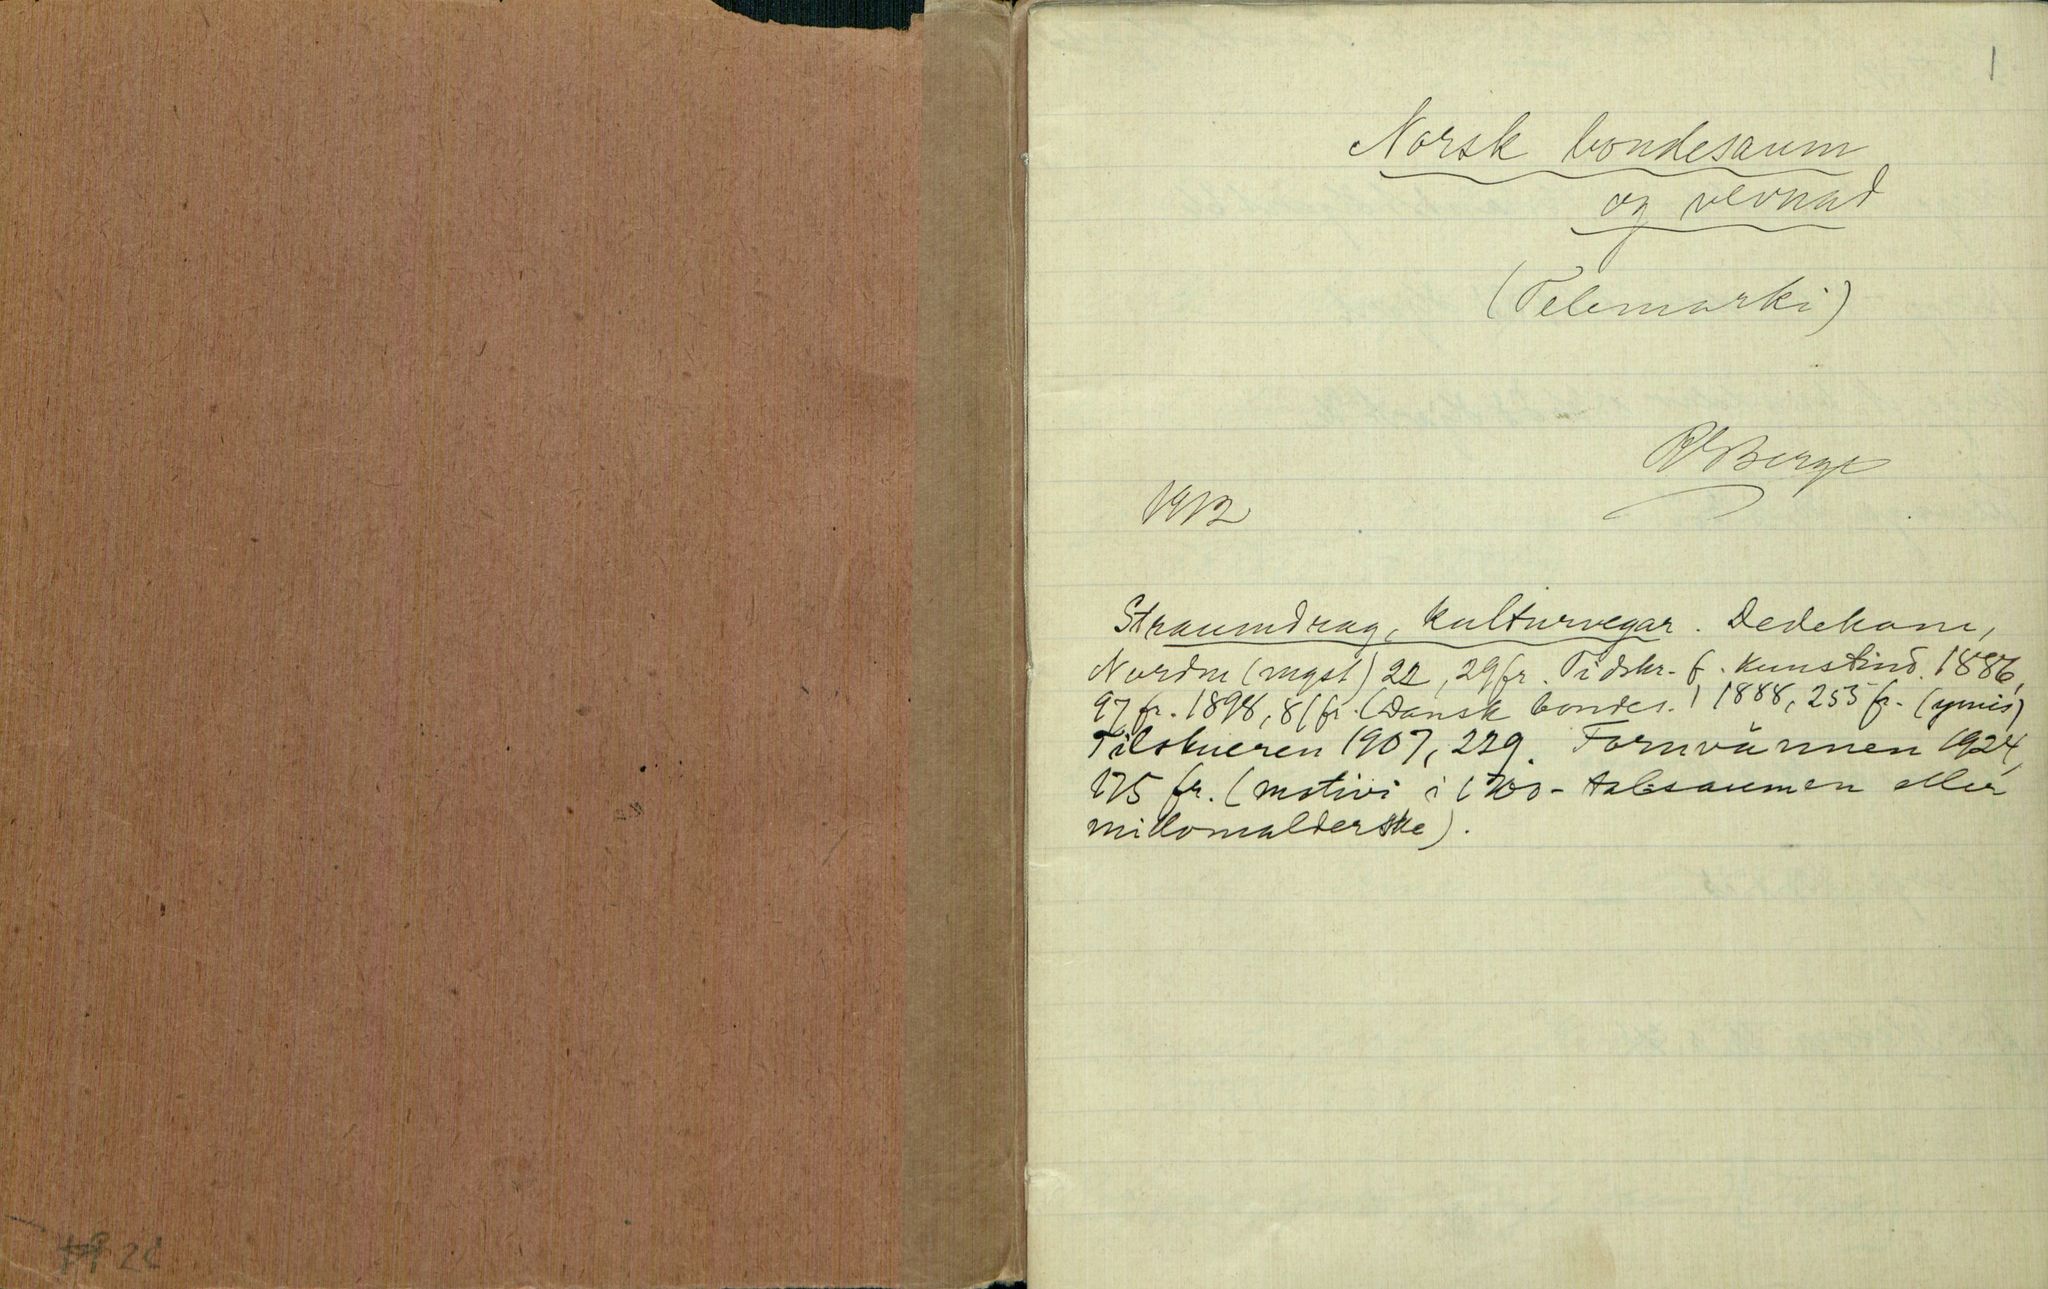 1
Norsk bondesaum
og vevnad
(Telemarki)
RBerge
1912
Straumdrag, kulturvegar. Dedekam,
Nordm (mgst) 22, 29 fr. Tidskr. f. kunstind. 1886,
97 fr. 1898, 81 fr. (Dansk bondes.) 1888, 255 fr. (ymis)
Tilskueren 1907, 229. Fornvännen 1924,
175 fr. (motivi i 1700-talssaumen eller
millomalderske).